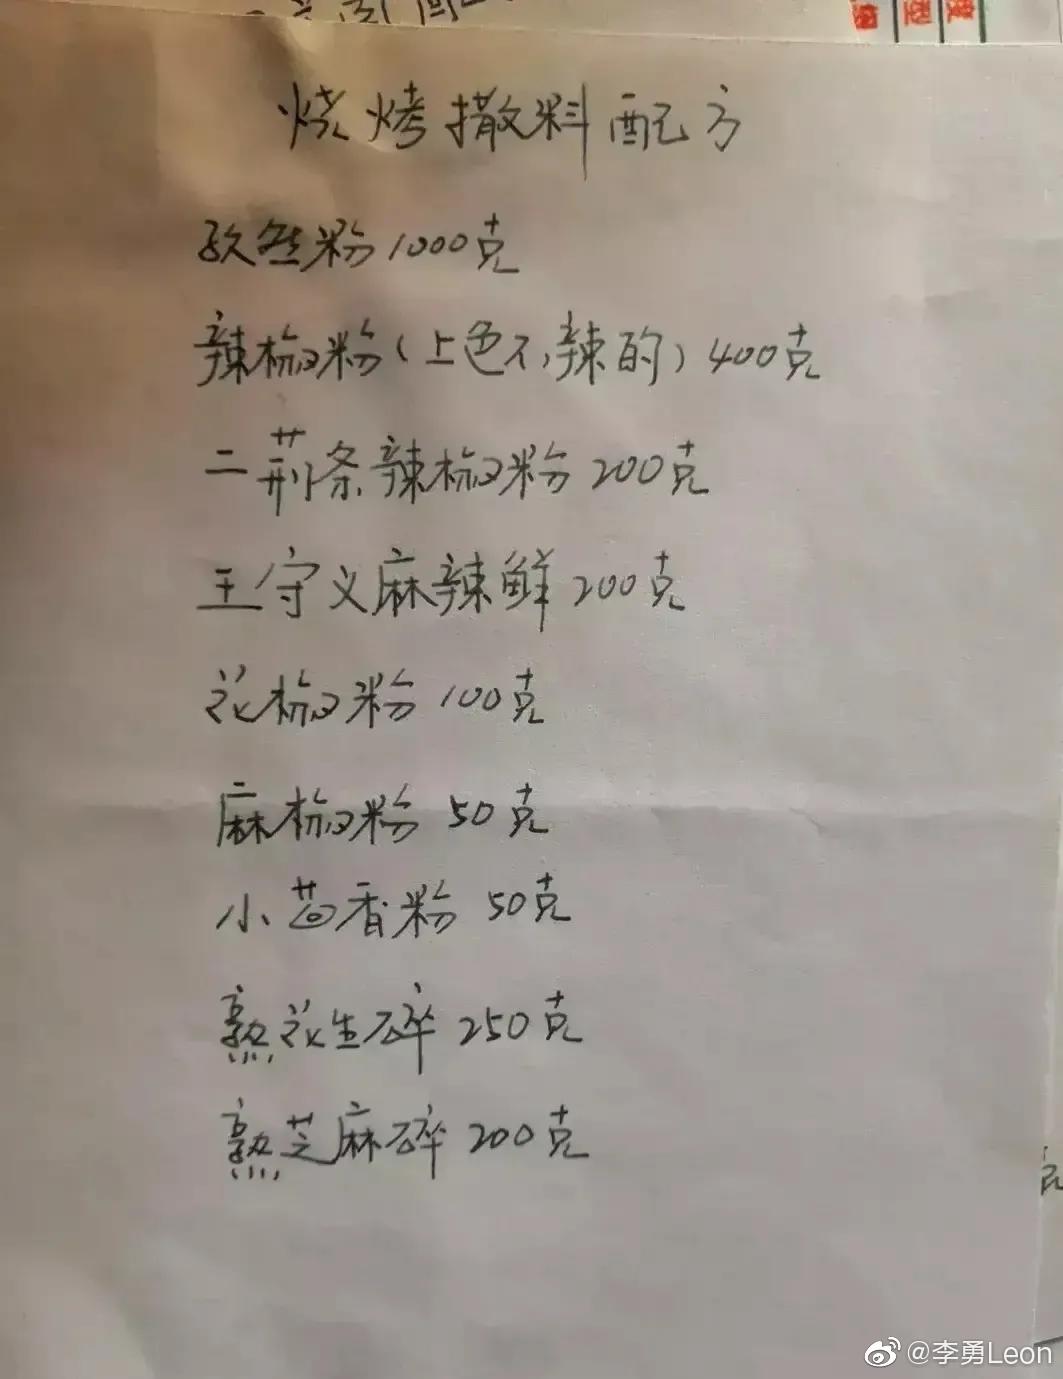 烧烤撒料配方
孜然粉1000克
辣椒粉（上色不辣的）400克
二荆条辣椒粉200克
王守义麻辣鲜200克
花椒粉100克
麻椒粉50克
小茴香粉50克
熟花生碎250克
熟芝麻碎200克
克
度
型
@李勇Leon